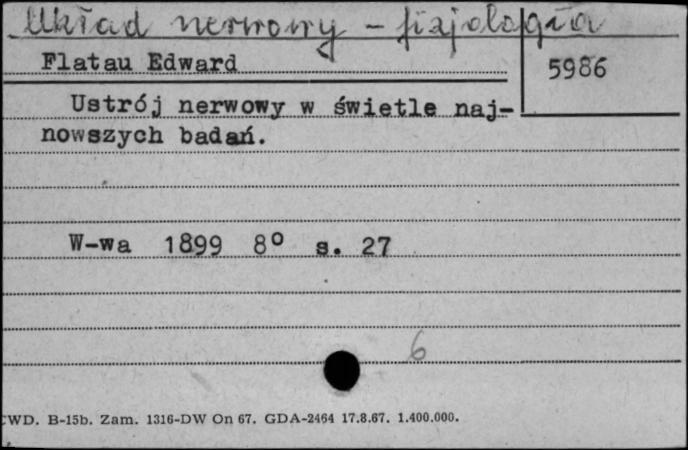 Układ nerwowy - fizjologia
Flatau Edward
5986
Ustrój nerwowy w świetle naj-
nowszych badań.
W-wa 1899 8° s. 27
6
CWD. B-15b. Zam. 1316-DW On 67. GDA-2464 17.8.67. 1.400.000.